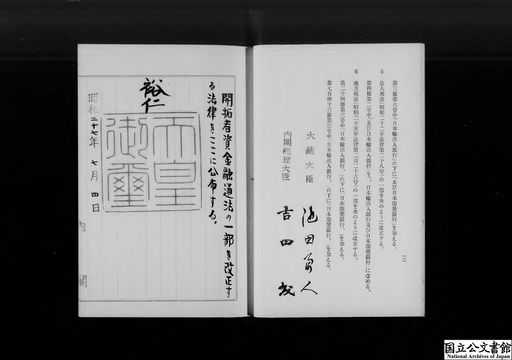 第三條第六号中「日本輸出入銀行」の下に「及び日本開発銀行」を加える。
5
法人税法(昭和二十二年法律第二十八号)の一部を次のように改正する。
第四條第二号中「及び日本輸出入銀行」を「、日本輸出入銀行及び日本開発銀行」に改める。
6
地方税法(昭和二十五年法律第二百二十六号)の一部を次のように改正する。
第二十四條第三号中「日本輸出入銀行、」の下に「日本開発銀行、」を加える。
第七百四十三條第三号中「日本輸出入銀行、」の下に「日本開発銀行、」を加える。
大藏大臣 池田勇人
内閣総理大臣 吉田茂
二
開拓者資金融通法の一部を改正す
る法律をここに公布する。
裕仁
天皇
御璽
昭和二十七年 七月 四日
内閣
国立公文書館
National Archives of Japan